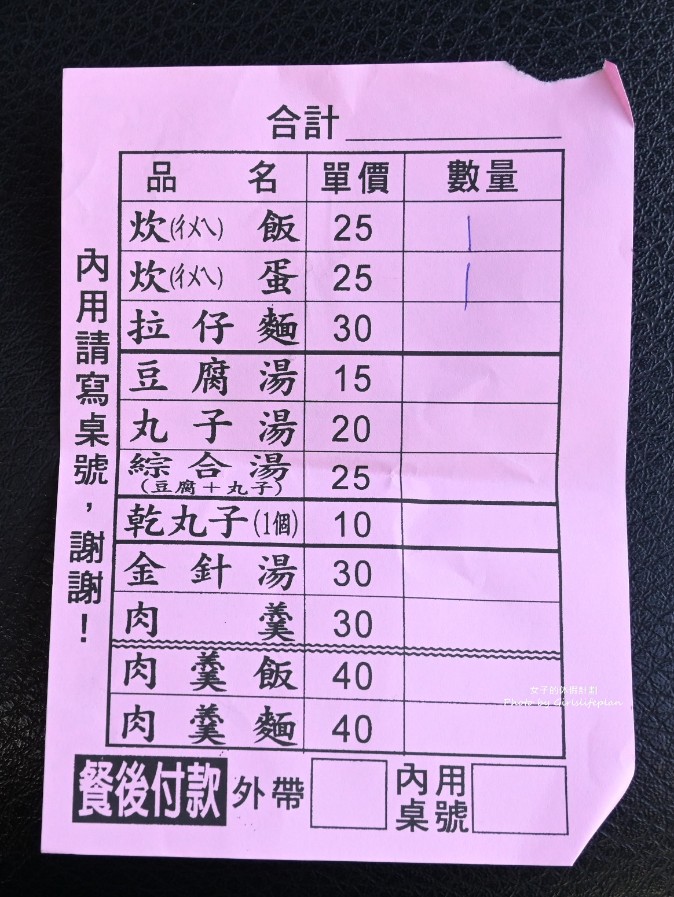 合計
品名 單價 數量
炊(ㄔㄨㄟ)飯 25 |
炊(ㄔㄨㄟ)蛋 25 |
拉仔麵 30
豆腐湯 15
丸子湯 20
綜合湯 25
(豆腐+丸子)
乾丸子(1個) 10
金針湯 30
肉羹 30
肉羹飯 40
肉羹麵 40
內用請寫桌號,謝謝!
餐後付款 外帶 內用
桌號
女子的休假計劃
Photo by Girlslifeplan